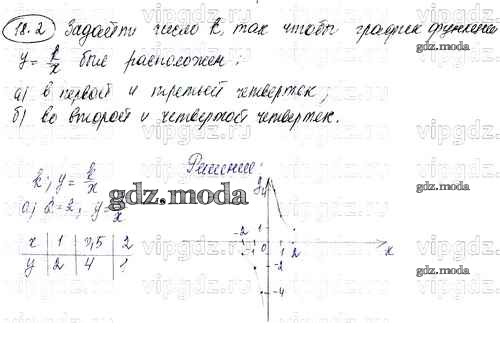 18.2 Задайте число k так чтобы график функции
y = k/x был расположен:
а) в первой и третьей четвертях;
б) во второй и четвертой четвертях.
Решение:
k; y = k/x
а) k=2; y = /x
x 1 0,5 2
y 2 4 1
4
1
-2 -1 0 1 2 x
-2
-4
gdz.moda
gdz.moda
gdz.moda
vipgdz.ru